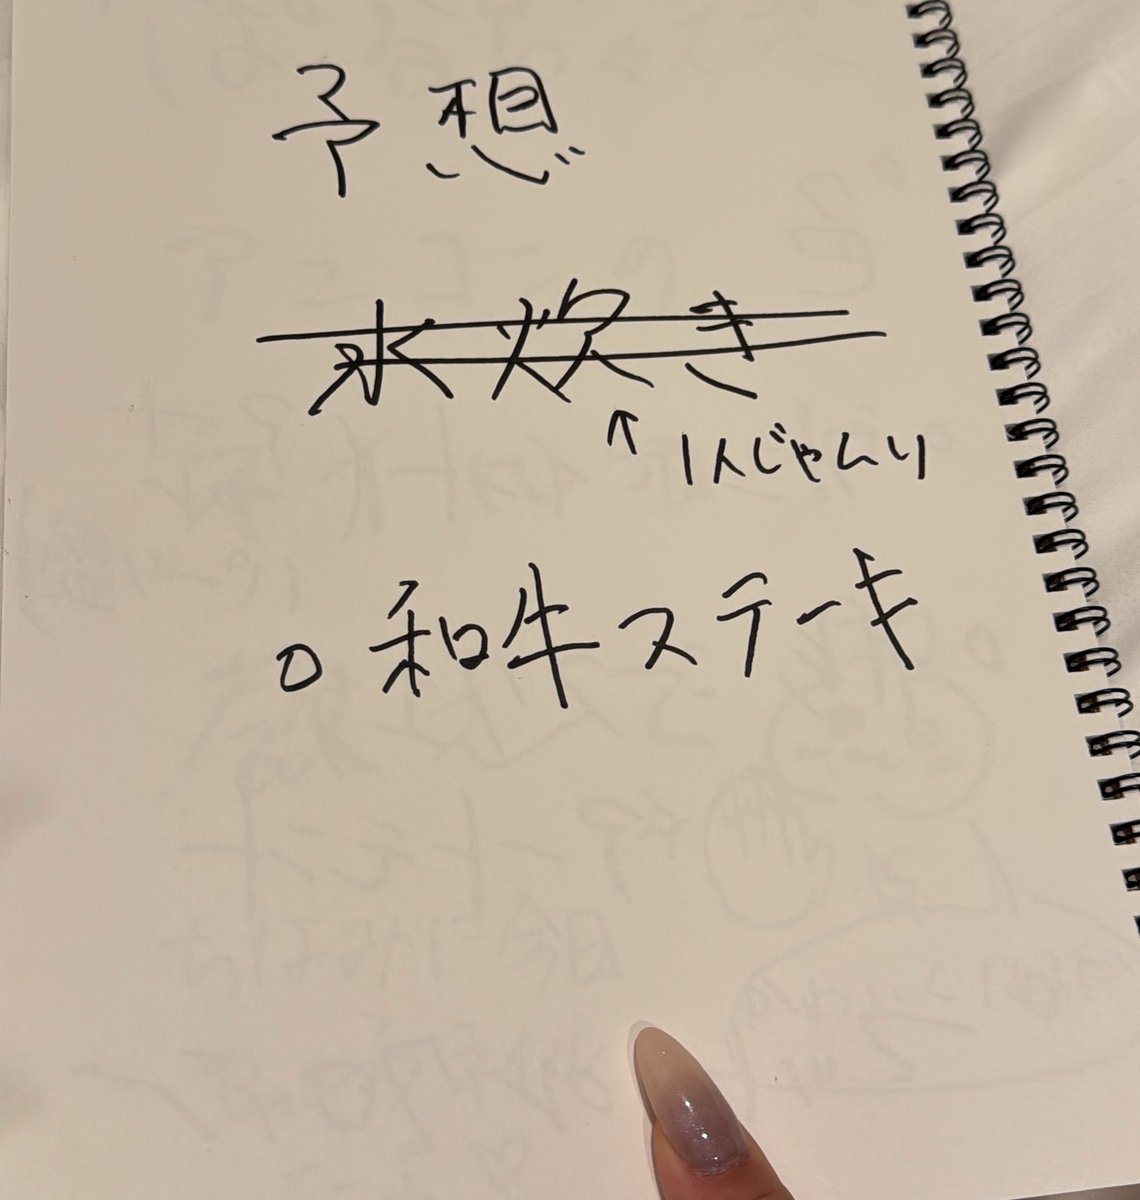 予想
水炊き
↑ 1人じゃんり
○ 和牛ステーキ